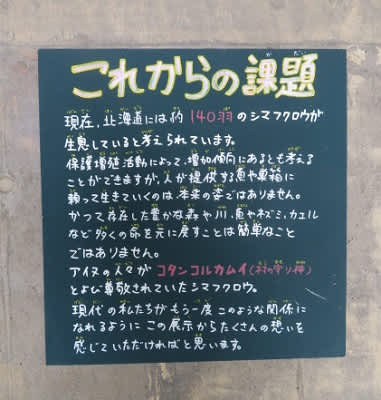 これからの課題
現在、北海道には約140羽のシマフクロウが
生息していると考えられています。
保護増殖活動によって、増加傾向にあるとも考える
ことができますが、人が提供する魚や巣箱に
頼って生きていくのは本来の姿ではありません。
かつて存在した豊かな森や川、魚やネズミ、カエル
など多くの命を元に戻すことは簡単なこと
ではありません。
アイヌの人々が コタンコルカムイ(村の守り神)
とよび尊敬されていたシマフクロウ。
現代の私たちがもう一度このような関係に
なれるように この展示からたくさんの想いを
感じていただければと思います。